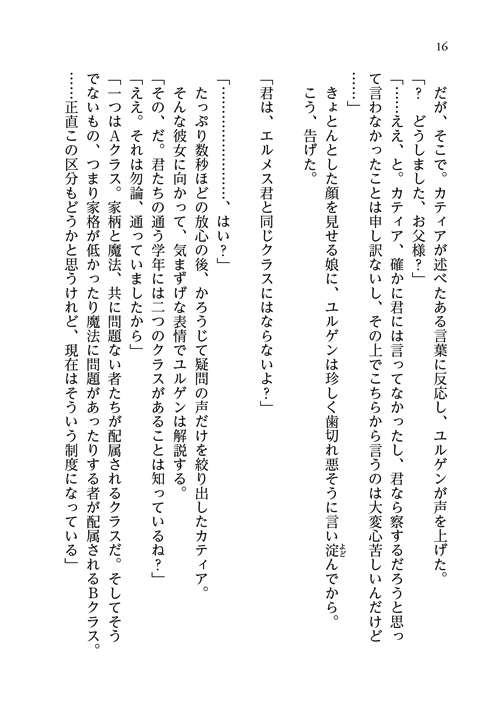 16
だが、そこで。カティアが述べたある言葉に反応し、ユルゲンが声を上げた。
「？　どうしました、お父様？」
「……ええ、と。カティア、確かに君には言ってなかったし、君なら察するだろうと思っ
て言わなかったことは申し訳ないし、その上でこちらから言うのは大変心苦しいんだけど
……」
きょとんとした顔を見せる娘に、ユルゲンは珍しく歯切れ悪そうに言い淀よどんでから。
こう、告げた。
「君は、エルメス君と同じクラスにはならないよ？」
「……………………、はい？」
たっぷり数秒ほどの放心の後、かろうじて疑問の声だけを絞り出したカティア。
そんな彼女に向かって、気まずげな表情でユルゲンは解説する。
「その、だ。君たちの通う学年には二つのクラスがあることは知っているね？」
「ええ。それは勿論、通っていましたから」
「一つはＡクラス。家柄と魔法、共に問題ない者たちが配属されるクラスだ。そしてそう
でないもの、つまり家格が低かったり魔法に問題があったりする者が配属されるＢクラス。
……正直この区分もどうかと思うけれど、現在はそういう制度になっている」